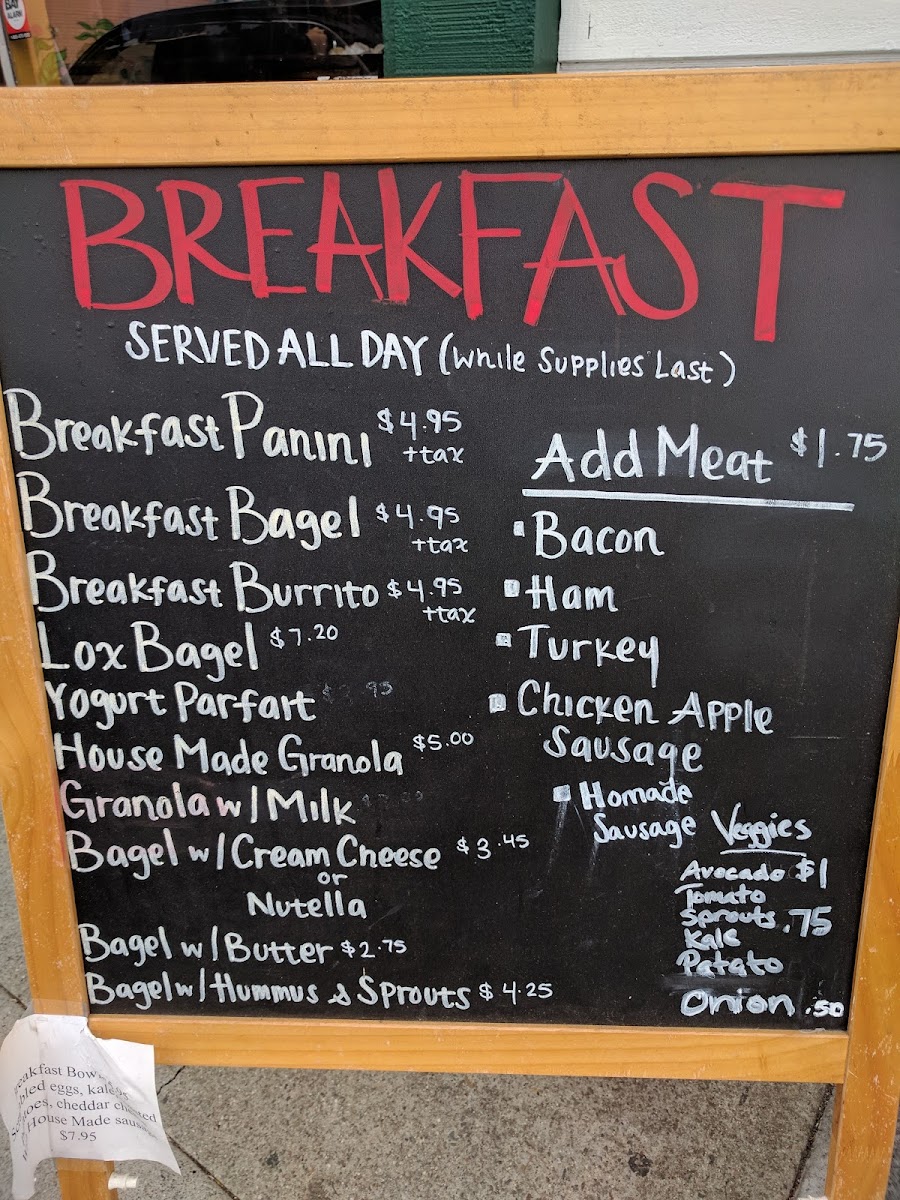 BREAKFAST
SERVED ALL DAY (While Supplies Last)
Breakfast Panini $4.95
+tax
Breakfast Bagel $4.95
+tax
Breakfast Burrito $4.95
+tax
Lox Bagel $7.20
Yogurt Parfait
House Made Granola $5.00
Granola w/ Milk
Bagel w/ Cream Cheese $3.45
or
Nutella
Bagel w/ Butter $2.75
Bagel w/ Hummus & Sprouts $4.25
Add Meat $1.75
Bacon
Ham
Turkey
Chicken Apple
Sausage
Homade
Sausage
Veggies
Avocado $1
Tomato
Sprouts .75
Kale
Patato
Onion .50
eggs, kale
cheddar
House Made
$7.95